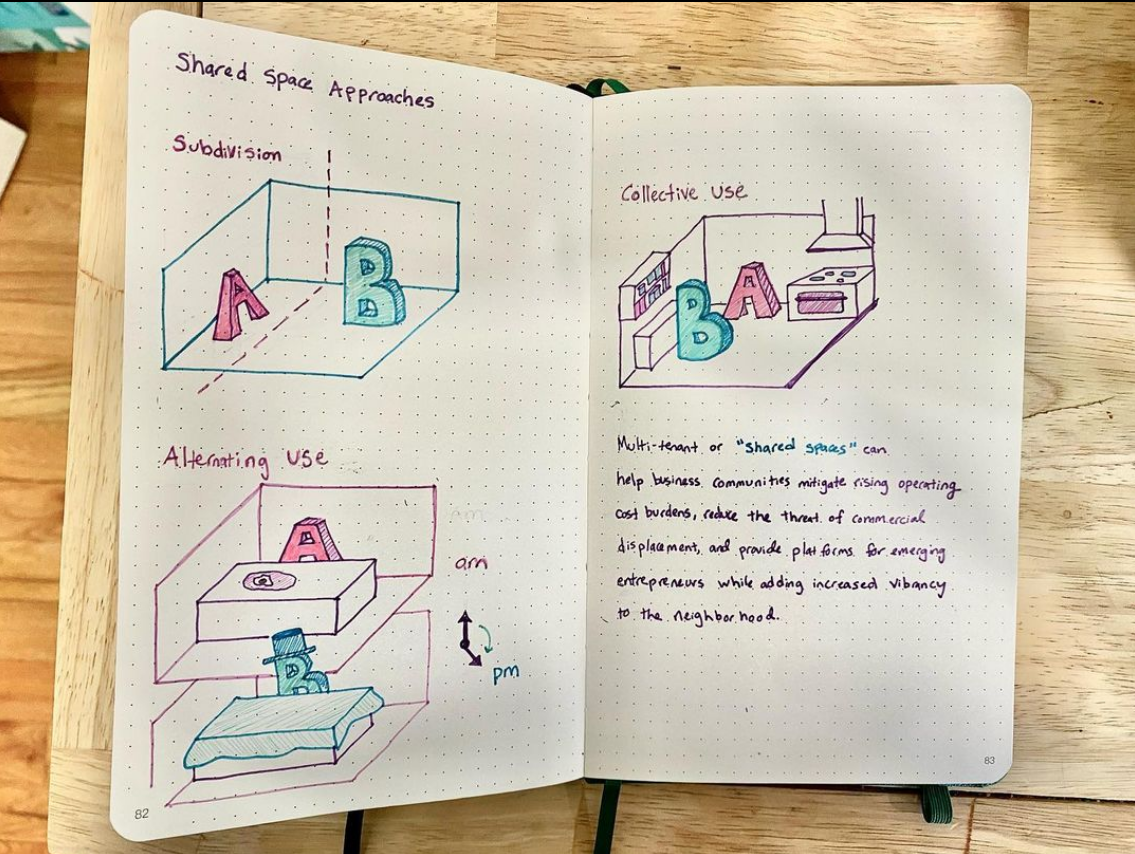 Shared Space Approaches
Subdivision
A
B
Alternating Use
A
am
B
pm
82
Collective Use
B
A
Multi-tenant or "shared spaces" can
help business communities mitigate rising operating
cost burdens, reduce the threat of commercial
displacement, and provide platforms for emerging
entrepreneurs while adding increased vibrancy
to the neighborhood.
83